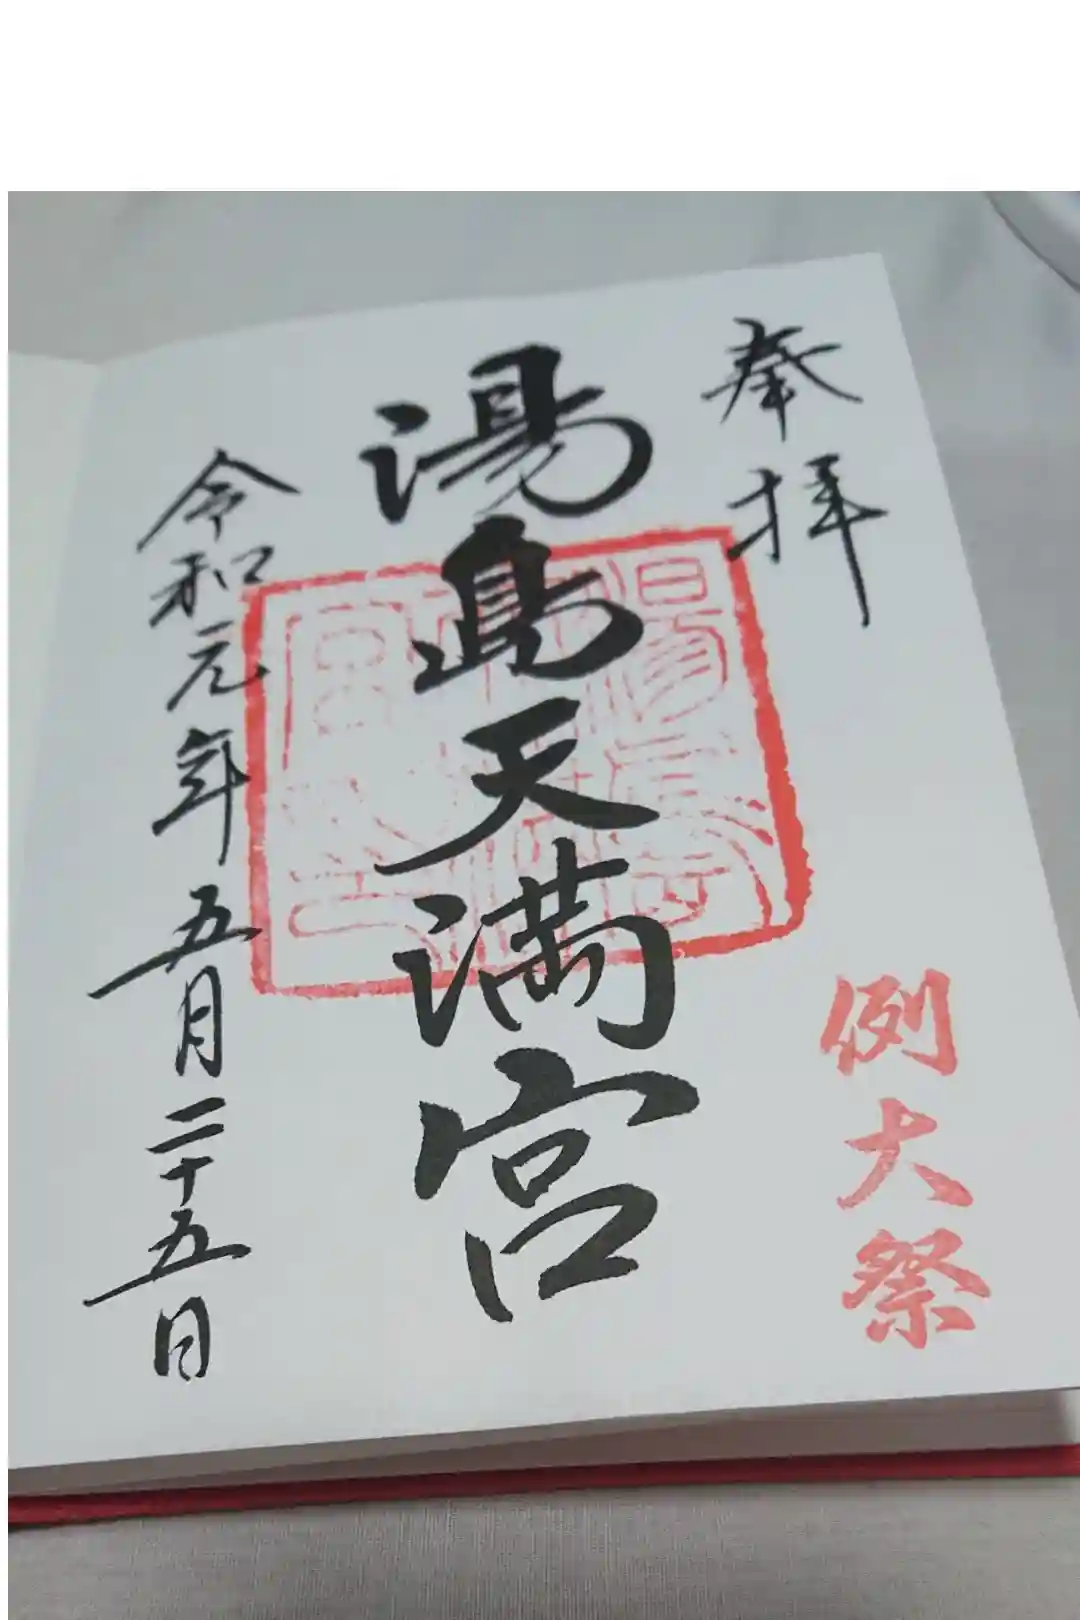 奉拝
例大祭
湯島天満宮
令和元年五月二十五日